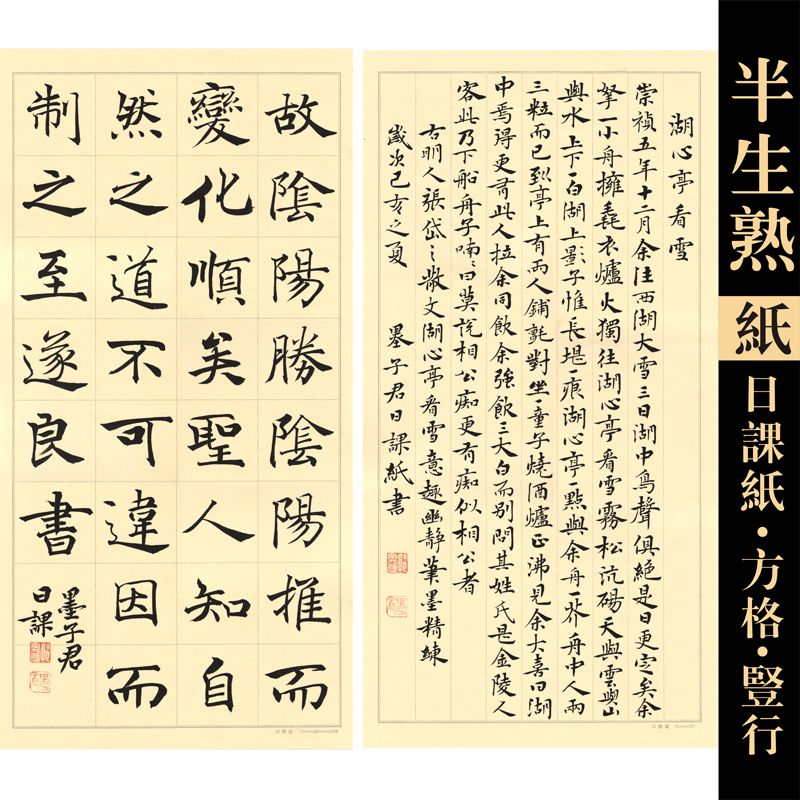 故陰陽勝陰陽推而
變化順矣聖人知自
然之道不可違因而
制之至遂良書
墨子君
日課
湖心亭看雪
崇禎五年十二月余住西湖大雪三日湖中鳥聲俱絕是日更定矣余
拏一小舟擁毳衣爐火獨往湖心亭看雪霧松沆碭天與雲與山
與水上下一白湖上影子惟長堤一痕湖心亭一點與余舟一芥舟中人兩
三粒而已到亭上有兩人鋪氈對坐一童子燒酒爐正沸見余大喜曰湖
中焉得更有此人拉余同飲余強飲三大白而別問其姓氏是金陵人
客此乃下船舟子喃〻曰莫說相公痴更有痴似相公者
右明人張岱之散文湖心亭看雪意趣幽靜筆墨精練
歲次己亥之夏 墨子君日課紙書
半生熟紙
日課紙·方格·豎行